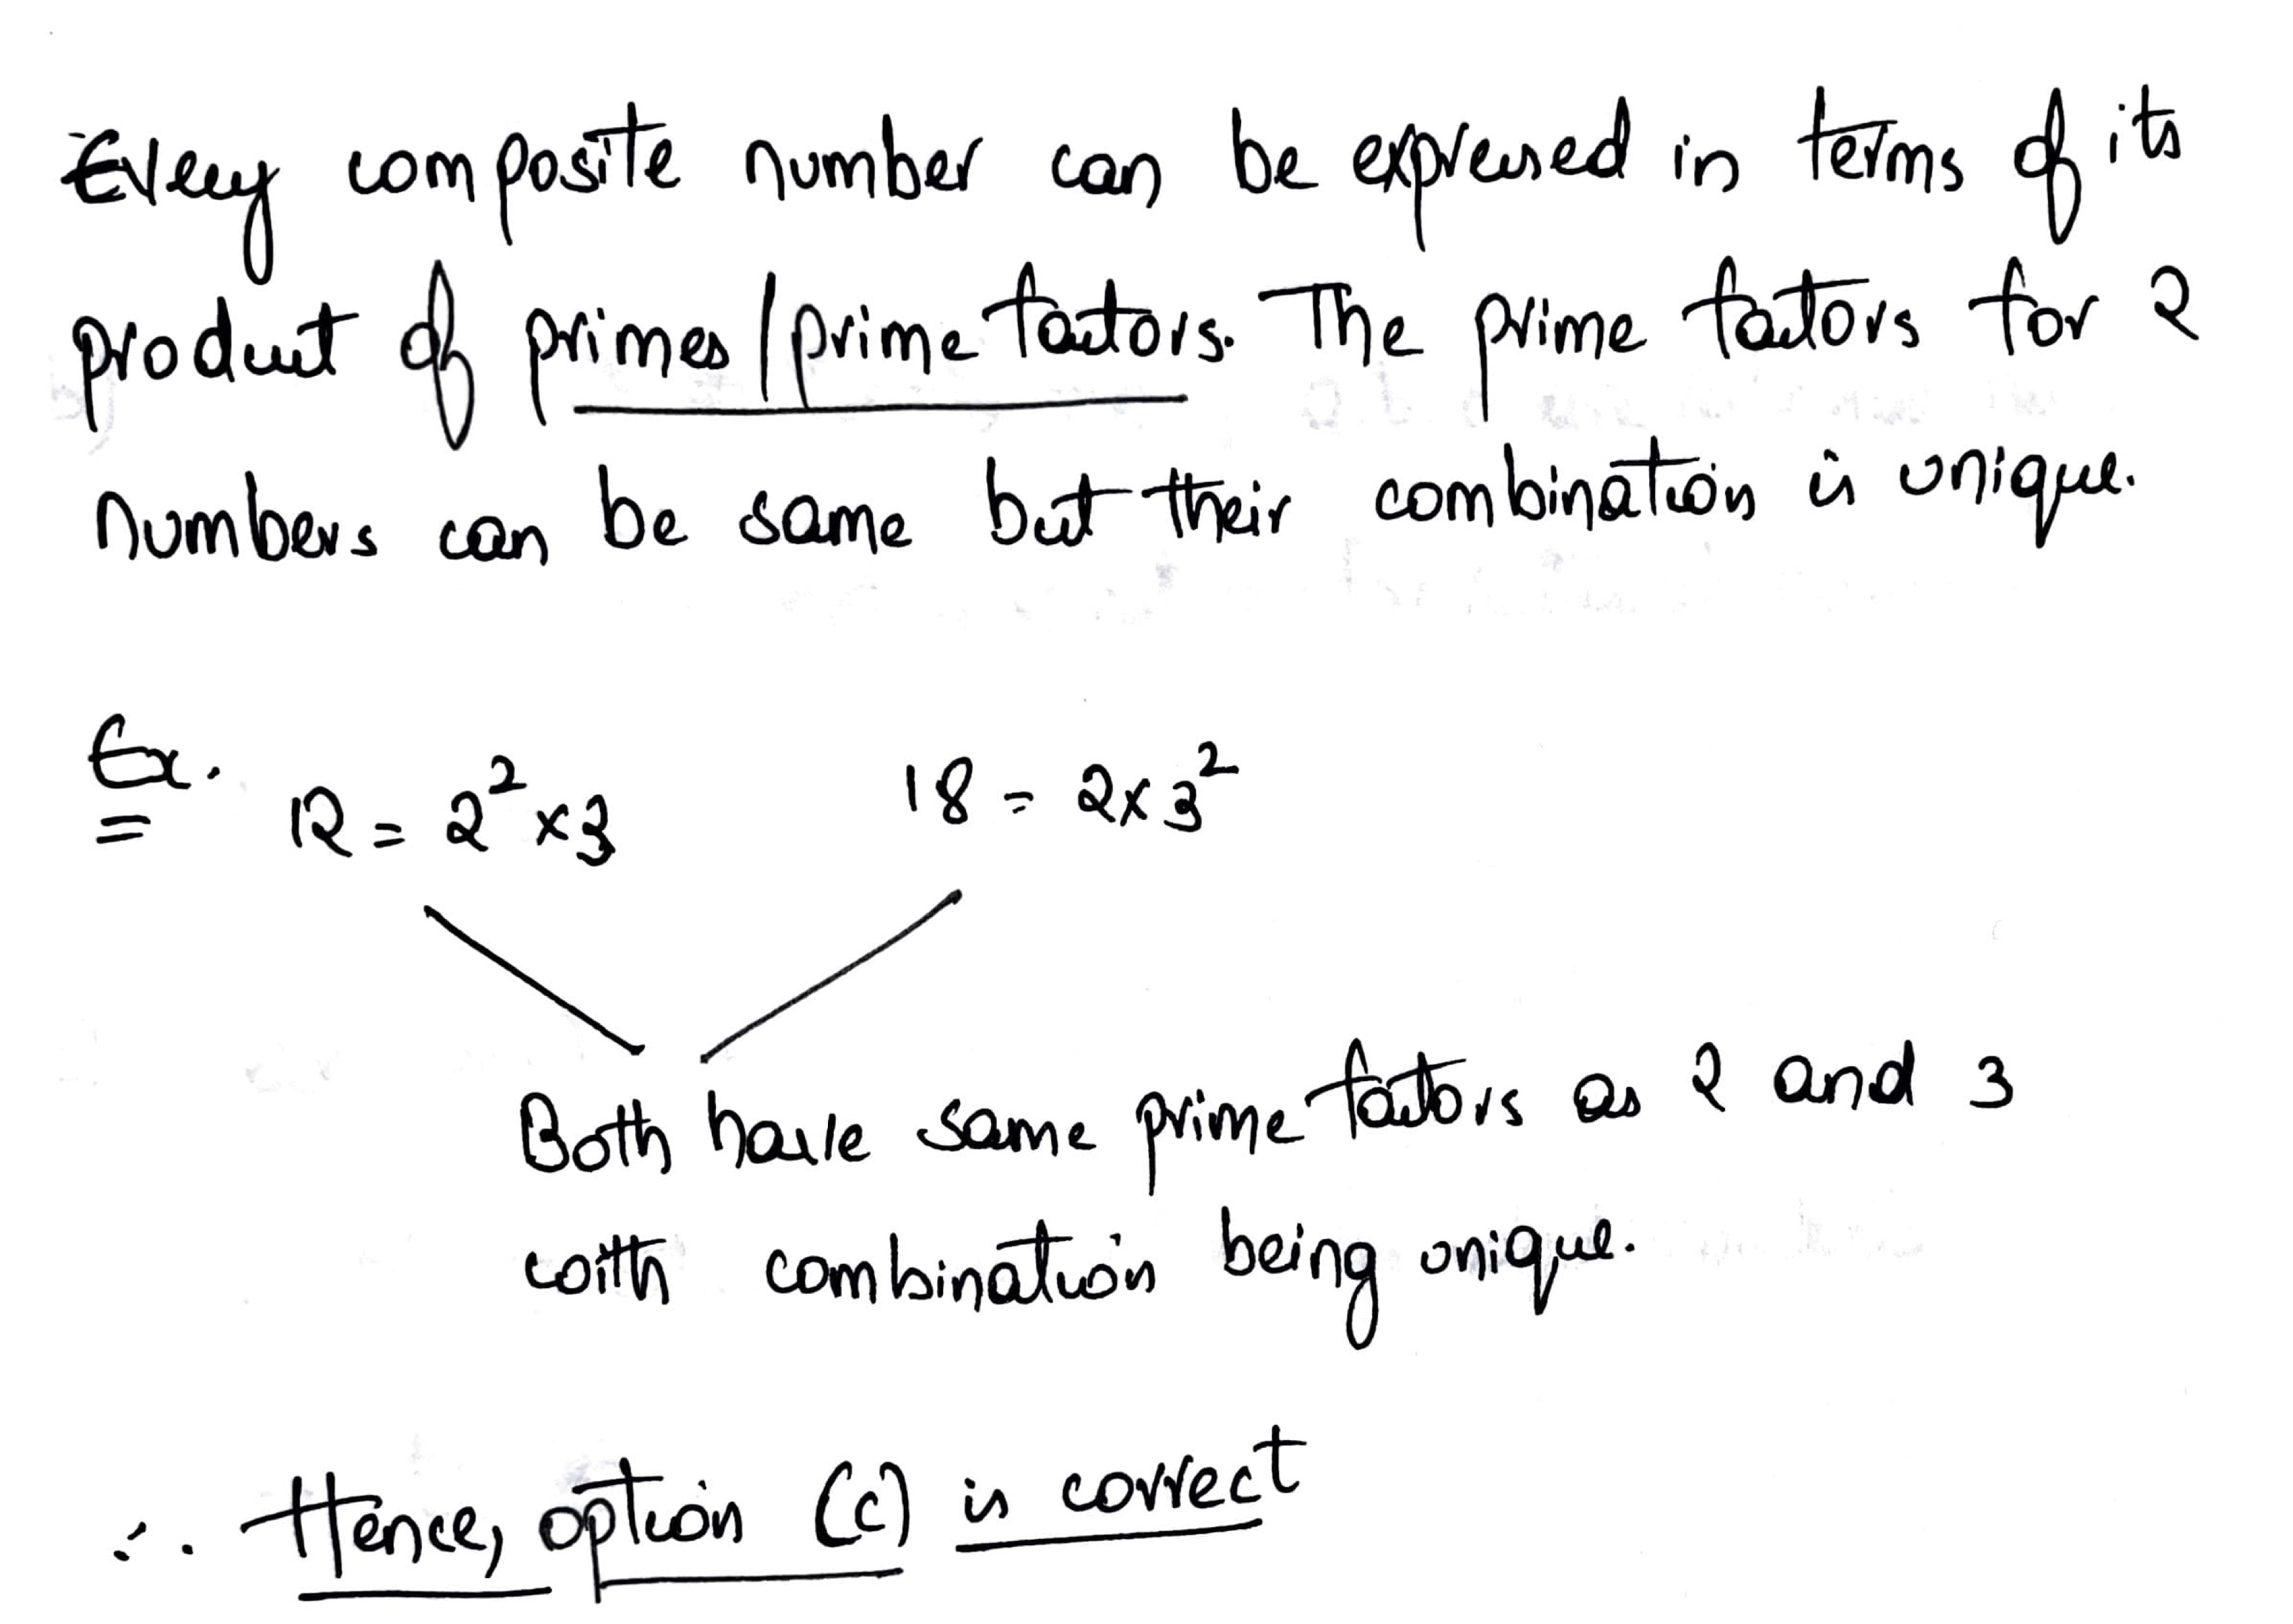 Every composite number can be expressed in terms of its
product of primes/prime factors. The prime factors for 2
numbers can be same but their combination is unique.
Ex. 12 = 2² × 3 18 = 2 × 3²
Both have same prime factors as 2 and 3
with combination being unique.
∴ Hence, option (c) is correct